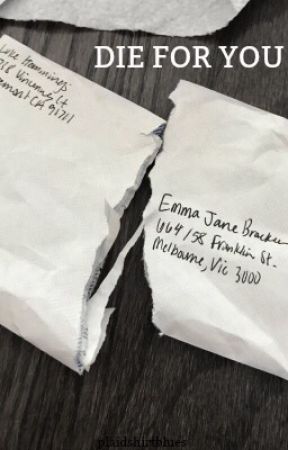 DIE FOR YOU
Luke Hemmings
Vincennes Ct.
CA 91711
Emma Jane Bracken
664/58 Franklin St.
Melbourne, Vic 3000
plaidshirtblues